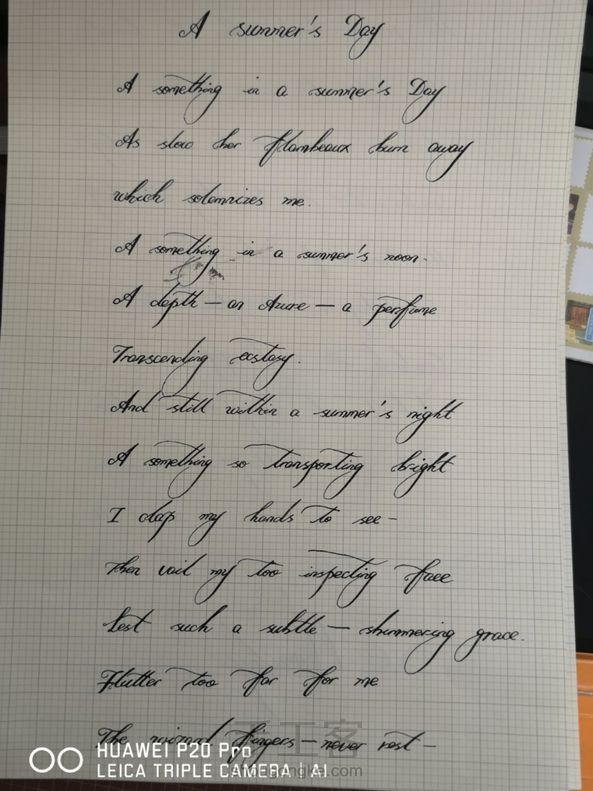 A summer's Day
A something in a summer's Day
As slow her flambeaux burn away
which solemnizes me.
A something in a summer's noon-
A depth — an Azure — a perfume
Transcending ecstasy.
And still within a summer's night
A something so transporting bright
I clap my hands to see-
Then vail my too inspecting face
Lest such a subtle — shimmering grace.
Flutter too far for me
The wizard fingers — never rest —
HUAWEI P20 Pro
LEICA TRIPLE CAMERA | AI